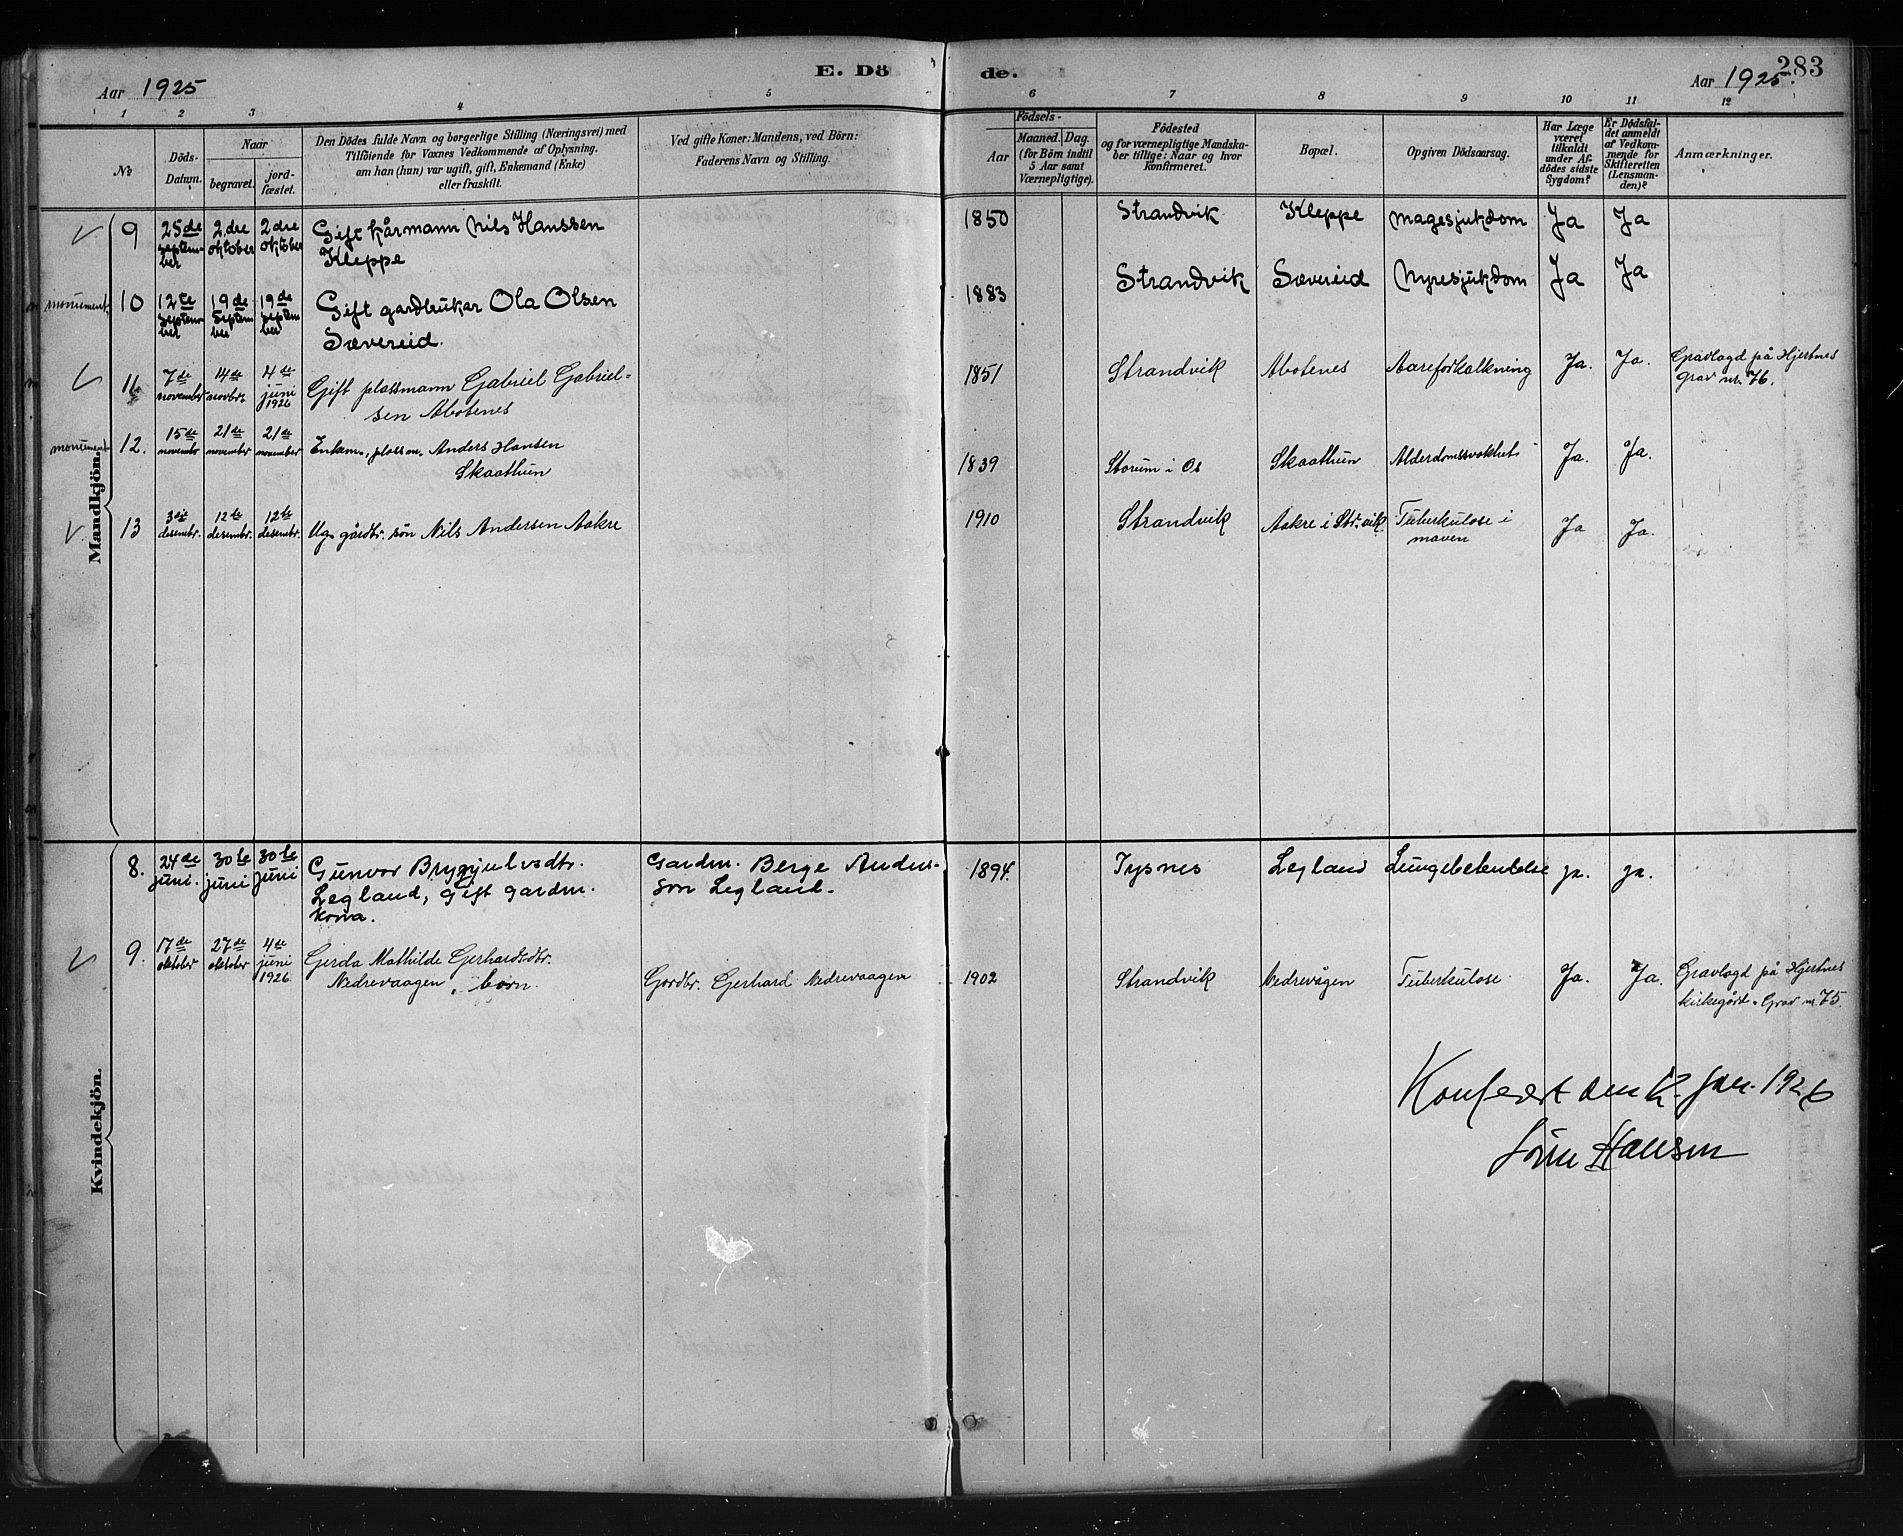 Aar 1925
E. Dö
de.
Aar 1925.
283
1 2 3 4 5 6 7 8 9 10 11 12
No
Döds-
Datum.
Naar
begravet.
jord-
fæstet.
Den Dödes fulde Navn og borgerlige Stilling (Næringsvei) med
Tilföiende for Voxnes Vedkommende af Oplysning,
om han (hun) var ugift, gift, Enkemand (Enke)
eller fraskilt.
Ved gifte Koner: Mandens, ved Börn:
Faderens Navn og Stilling.
Födsels-
Aar
Maaned. Dag.
(for Börn indtil
5 Aar samt
Værnepligtige).
Födested
og for værnepligtige Mandska-
ber tillige: Naar og hvor
konfirmeret.
Bopæl.
Opgiven Dödsaarsag.
Har Læge
været
tilkaldt
under Af-
dödes sidste
Sygdom?
Er Dödsfal-
det anmeldt
af Vedkom-
mende for
Skifteretten
(Lensman-
den)?
Anmærkninger.
Mandkjön.
9 25de september 2dre oktober 2dre oktober Gift kårmann Nils Hanssen
Kleppe
1850 Strandvik Kleppe Magesjukdom Ja Ja
monument 10 12te september 19de september 19de september Gift gardbrukar Ola Olsen
Sævereid.
1883 Strandvik Sævereid Nyresjukdom Ja Ja
11 7de november 14de novbr. 4de juni 1926 Gift plassmann Gabriel Gabriel-
sen Abotenes
1851 Strandvik Abotenes Aareforkalkning Ja. Ja. Gravlagd på Hjertnes
grav nr. 76.
monument 12. 15de november 21de november 21de november Enkem., plassm. Anders Hansen
Skaathun
1839 Storum i Os Skaathun Alderdomssvakhet Ja. Ja.
13 3die desembr. 12te desembr. 12te desembr. Ug. gårdbr. søn Nils Andersen Aakre
1910 Strandvik Aakre i Str.vik Tuberkulose i
maven
Ja Ja.
Kvindekjön.
8. 24de juni. 30te juni 30te juni Gunvor Brygjulvsdtr.
Legland, Gift gardm.
kona.
Gardm. Berge Ander-
son Legland.
1894. Tysnes Legland Lungebetendelse ja. ja.
9. 17de oktober 27de oktober 4de juni 1926 Gerda Mathilde Gerhardsdtr.
Nedrevaagen, barn.
Gardbr. Gerhard Nedrevaagen
1902 Strandvik Nedrevågen Tuberkulose Ja. Ja. Gravlagd på Hjertnes
kirkegård. Grav nr. 75.
Konferert den 12. Jan. 1926
Hansen